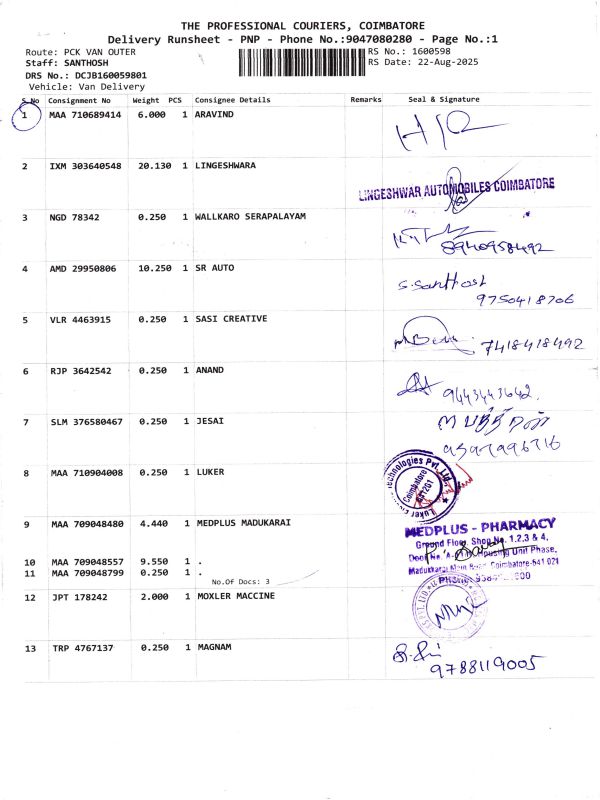 THE PROFESSIONAL COURIERS, COIMBATORE
Delivery Runsheet - PNP - Phone No.:9047080280 - Page No.:1
Route: PCK VAN OUTER
RS No.: 1600598
Staff: SANTHOSH
RS Date: 22-Aug-2025
DRS No.: DCJB160059801
Vehicle: Van Delivery
S.No Consignment No Weight PCS Consignee Details Remarks Seal & Signature
1 MAA 710689414 6.000 1 ARAVIND
2 IXM 303640548 20.130 1 LINGESHWARA
LINGESHWAR AUTOMOBILES COIMBATORE
3 NGD 78342 0.250 1 WALLKARO SERAPALAYAM
8940958492
4 AMD 29950806 10.250 1 SR AUTO
S.Santhosh
9750418706
5 VLR 4463915 0.250 1 SASI CREATIVE
7418418492
6 RJP 3642542 0.250 1 ANAND
9443443642
7 SLM 376580467 0.250 1 JESAI
8 MAA 710904008 0.250 1 LUKER
Technologies Pvt. Ltd.
Coimbatore
641201
9 MAA 709048480 4.440 1 MEDPLUS MADUKARAI
MEDPLUS - PHARMACY
Ground Floor, Shop No. 1,2,3 & 4,
Housing Unit Phase,
Coimbatore-641 021
10 MAA 709048557 9.550 1 .
11 MAA 709048799 0.250 1 .
No.Of Docs: 3
12 JPT 178242 2.000 1 MOXLER MACCINE
13 TRP 4767137 0.250 1 MAGNAM
9788119005